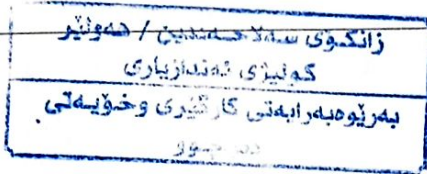 زانکۆی سەلاحەددین / هەولێر
کۆلیژی ئەندازیاری
بەڕێوەبەرایەتی کارگێری وخۆیەتی